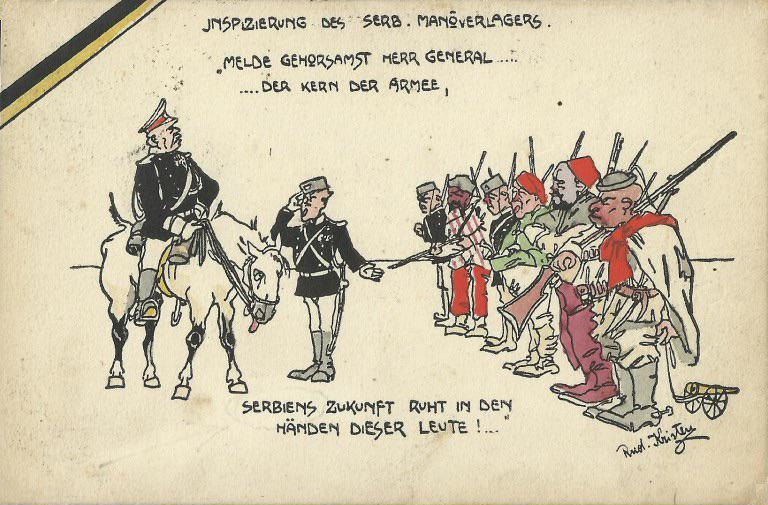 JNSPIZIERUNG DES SERB. MANÖVERLAGERS.
"MELDE GEHORSAMST HERR GENERAL.....
....DER KERN DER ARMEE,
SERBIENS ZUKUNFT RUHT IN DEN
HÄNDEN DIESER LEUTE!..."
Rud. Kristen